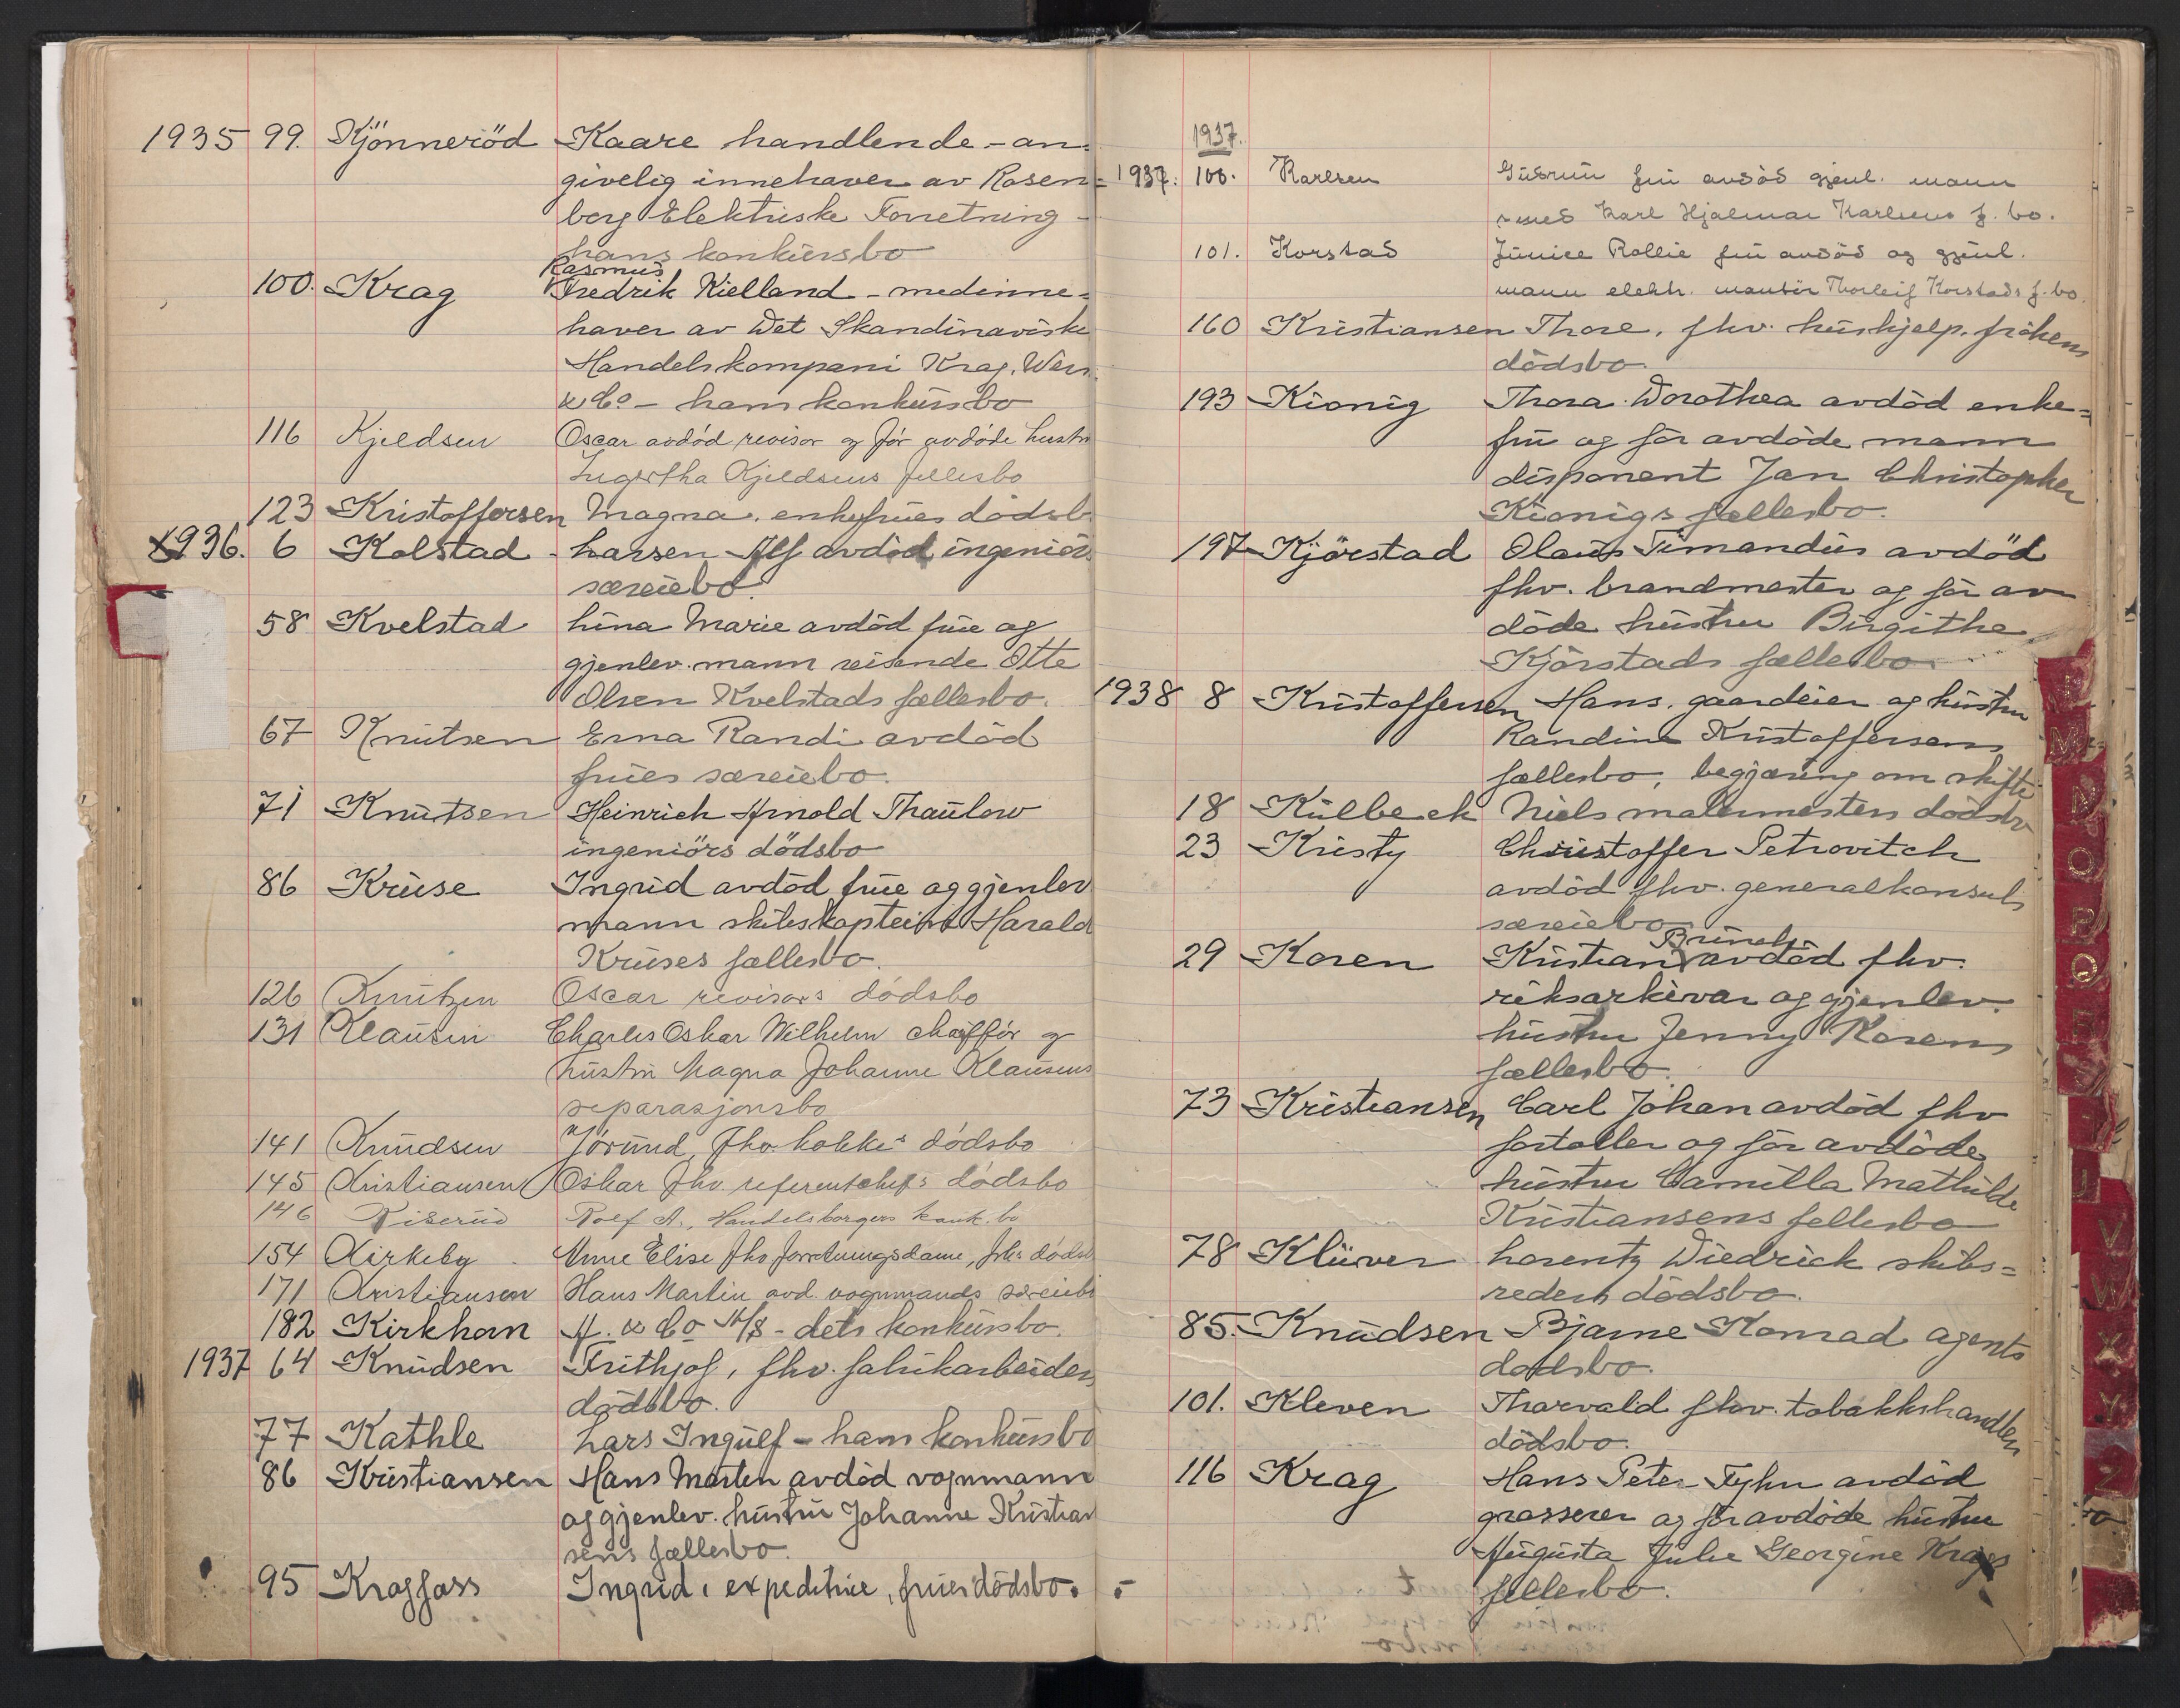 1935 99. Kjönneröd Kaare handlende - an=
givelig innehaver av Rosen=
berg Elektriske Forretning -
hans konkursbo
Rasmus
100. Krag Fredrik Kielland - medinne=
haver av Det Skandinaviske
Handelskompani Krag,
& Co - hans konkursbo
116 Kjeldsen Oscar avdød revisor og før avdøde hustru
Kjeldsens fellesbo
123 Kristoffersen Magna, enkefrues dödsb
1936. 6 Kolstad Larsen Alf avdöd ingeniörs
særeiebo.
58 Kvelstad Lina Marie avdöd frue og
gjenlev. mann reisende Otte
Olsen Kvelstads fællesbo.
67 Knutsen Erna Randi avdöd
frues særeiebo.
71 Knutsen Heinrich Arnold Thaulow
ingeniörs dödsbo
86 Kruse Ingrid avdöd frue og gjenlev
mann skibskaptein Harald
Kruses fællesbo.
126 Knutzen Oscar revisors dödsbo
131 Klausen Charles Oskar Wilhelm chafför og
hustru Magna Johanne Klausens
separasjonsbo
141 Knudsen Jörund, fhv. kokkes dödsbo
145 Kristiansen Oskar fhv. referentchefs dödsbo
146 Rolf A., Handelsborgers konk. bo
154 Kirkeby Anne Elise fhv forretningsdame, frks dödsb
171 Kristiansen Hans Martin avd. vognmands særeiebo
182 Kirkhorn A. & Co A/S - dets konkursbo.
1937 64 Knudsen Frithjof, fhv. fabrikarbeiders
dödsbo.
77 Kathle Lars Ingulf - hans konkursbo
86 Kristiansen Hans Morten avdöd vognmann
og gjenlev. hustru Johanne Kristian
sens fællesbo.
95 Kragfoss Ingrid, expeditrise, frues dödsbo.
1937.
1937. 100. Karlsen Gudrun fru avdöd gjenl. mann
Karl Hjalmar Karlsens f. bo.
101. Korstad Junice Rollie fru avdöd og gjenl.
mann elektr. montör Thorleif Korstads f. bo.
160 Kristiansen Thore, fhv. hushjelp, frökens
dödsbo
193 Kionig Thora Dorothea avdöd enke=
fru og för avdöde mann
disponent Jan Christopher
Kionigs fællesbo.
197 Kjörstad Olaus Timandus avdöd
fhv. brandmester og för av
döde hustru Birgithe
Kjörstads fællesbo
1938 8 Kristoffersen Hans, gaardeier og hustru
Randine Kristoffersens
fællesbo, begjæring om skifte
18 Külbeck Niels malermesters dödsbo
23 Kristy Christoffer Petrovitch
avdöd fhv. generalkonsuls
særeiebo
Brinch
29 Koren Kristian avdöd fhv.
riksarkivar og gjenlev.
hustru Jenny Korens
fællesbo.
73 Kristiansen Carl Johan avdöd fhv
fortoller og för avdöde
hustru Camilla Mathilde
Kristiansens fellesbo
78 Klüver Lorentz Diedrick skibs=
reders dödsbo.
85. Knudsen Bjarne Konrad agents
dødsbo.
101. Kleven Thorvald fhv. tobakkshandlers
dödsbo.
116 Krag Hans Peter Fyhn avdöd
grosserer og för avdöde hustru
Augusta Julie Georgine Krags
fellesbo.
M
N
O
P
Q
R
S
T
U
V
W
X
Y
Z